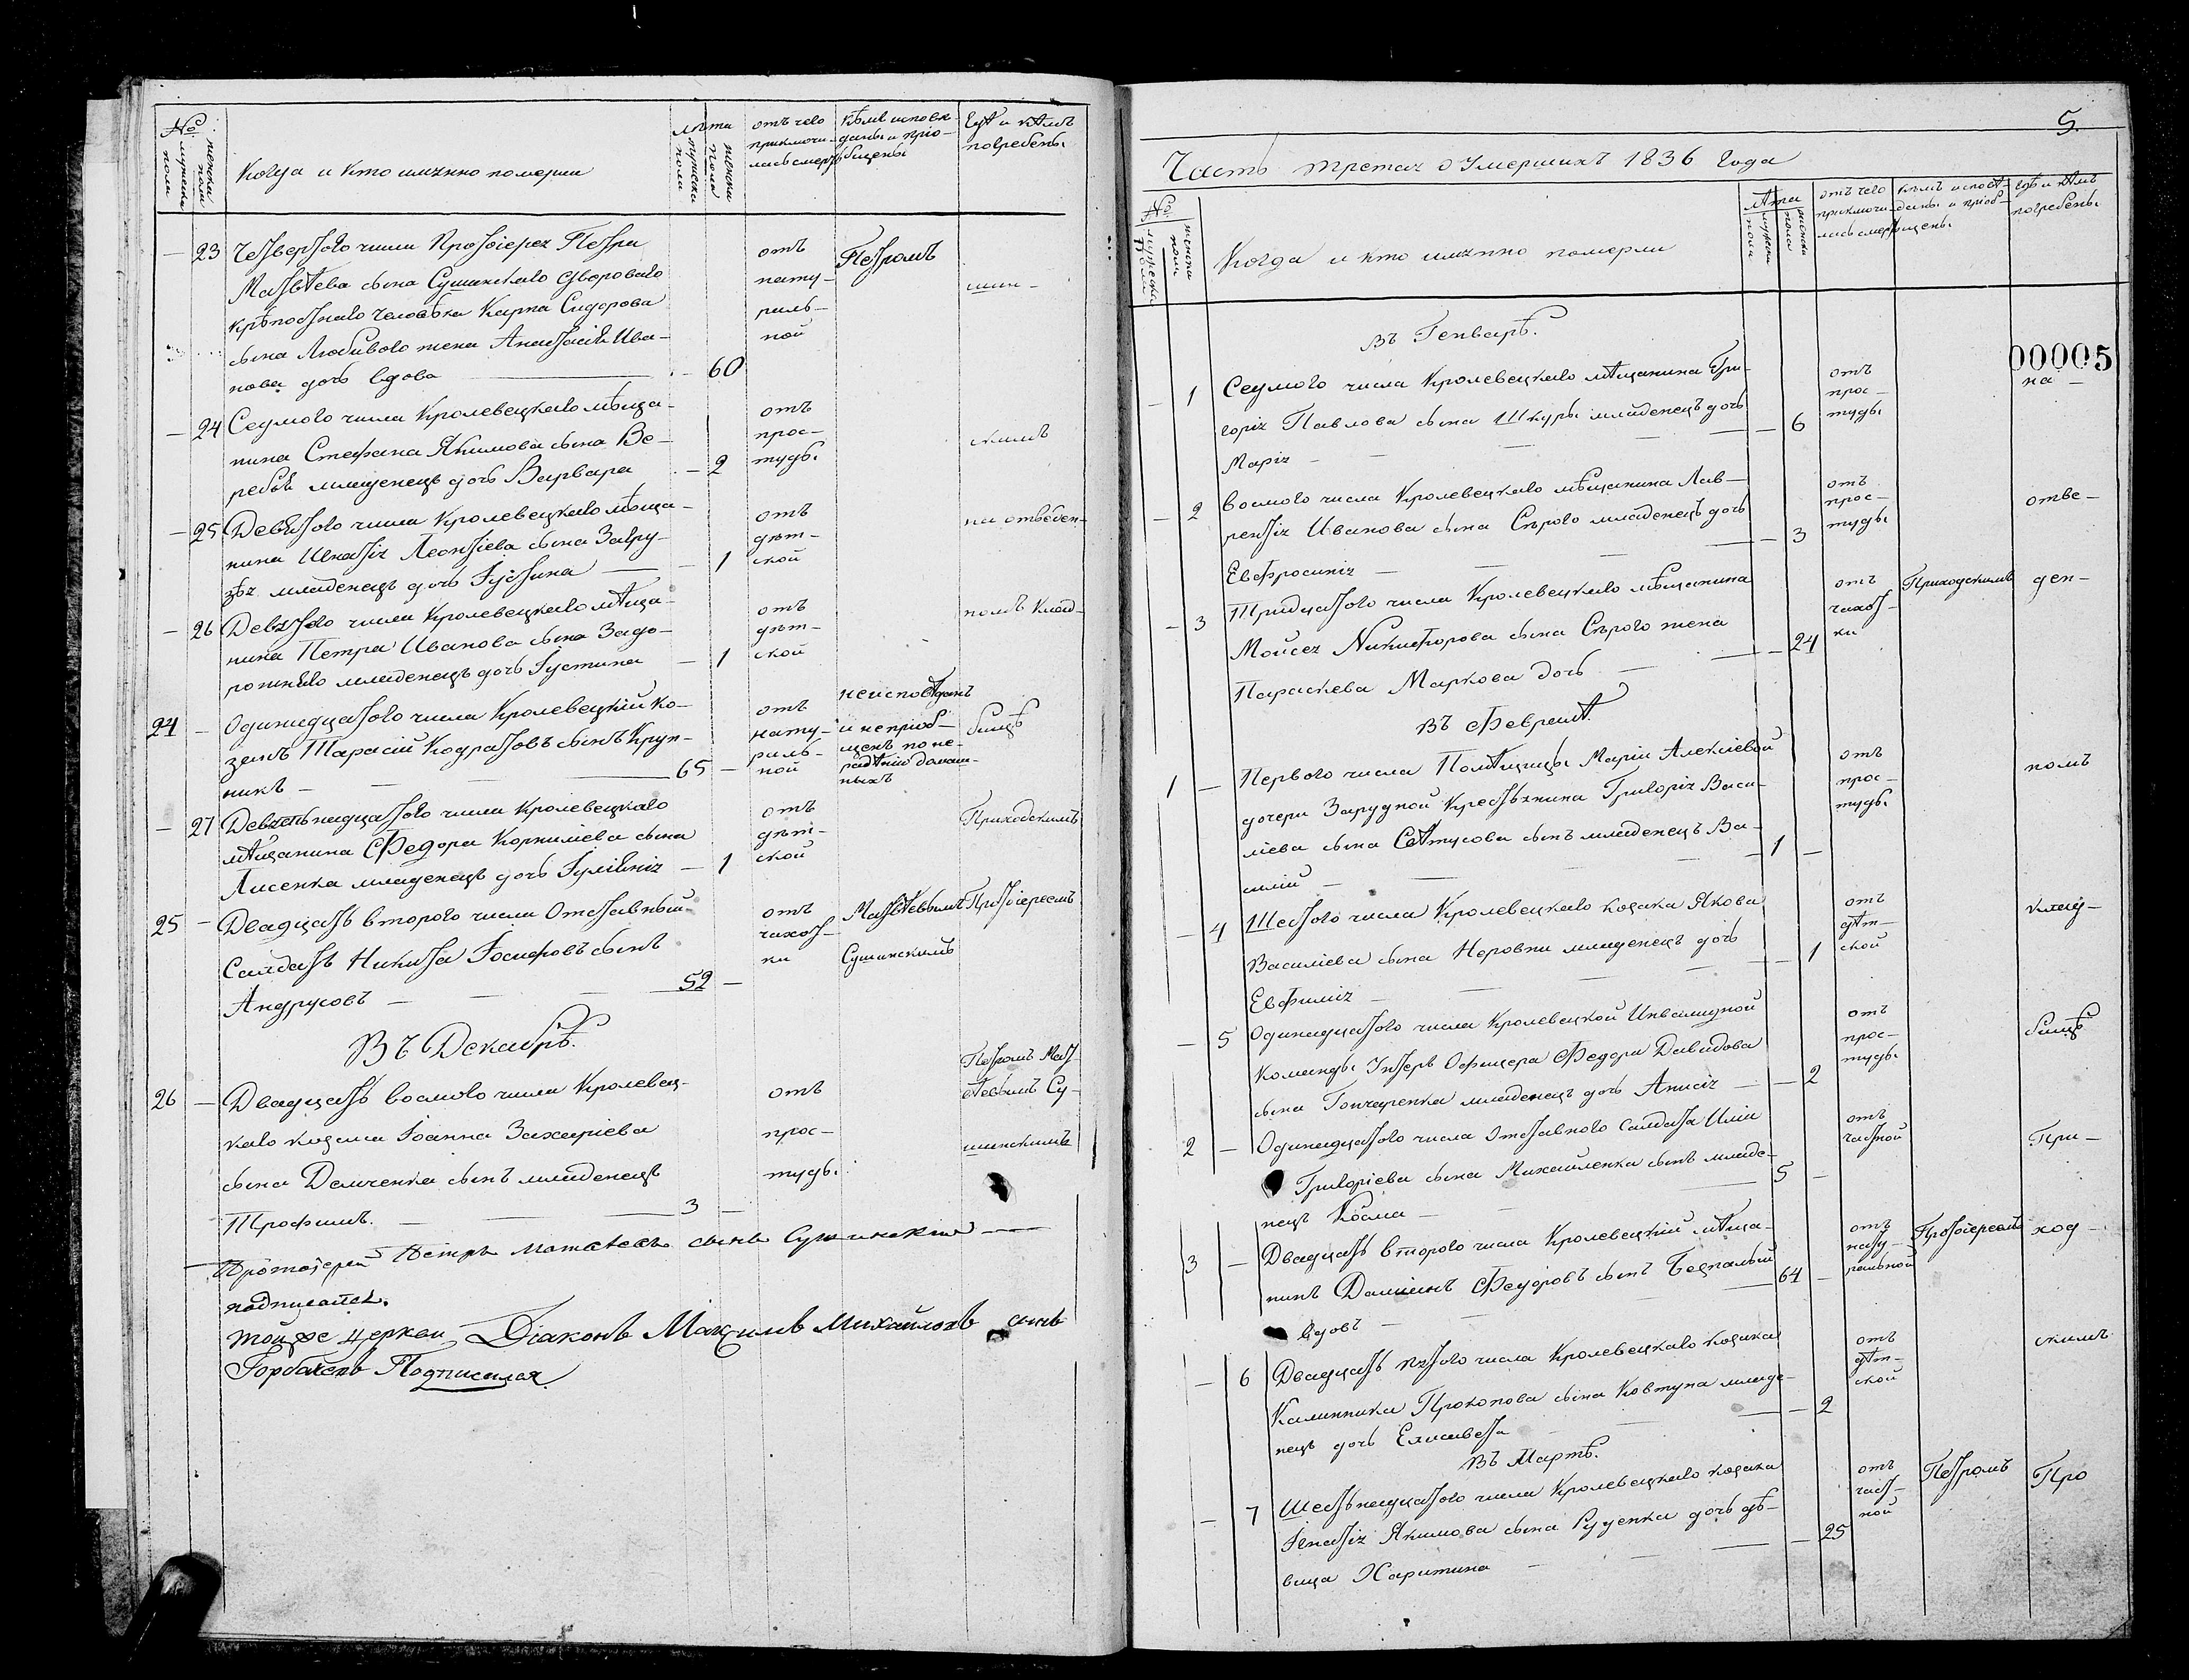 №
мужеска пола
женска пола
Когда и кто имянно померли
лѣта
мужеска пола
женска пола
отъ чего приключи- лась смерть
кѣмъ исповѣ- даны и прiо- бщены
гдѣ и кѣмъ погребены
— 23 Четвертого числа Протоiерея Петра
Матвѣева сына Сушинскаго Дворового
крѣпостнаго человѣка Карпа Сидорова
сына Любивого жена Анастасiя Ива-
нова дочь вдова — 60
отъ нату- раль- ной
Петромъ
шин-
— 24 Седмого числа Кролевецкаго мѣща-
нина Стефана Якимова сына Ве-
ребѣя младенецъ дочь Варвара — 2
отъ прос- туды
скимъ
— 25 Девятого числа Кролевецкаго мѣща-
нина Игнатiя Леонтiева сына Загру-
младенецъ дочь Iустина — 1
отъ дѣт- ской
на отведен-
— 26 Девятого числа Кролевецкаго мѣща-
нина Петра Иванова сына Задо-
рожнего младенецъ дочь Iустина — 1
отъ дѣт- ской
номъ клад-
24 — Одинадцатого числа Кролевецкiй ко-
закъ Тарасiй Кодратовъ сынъ Круп-
никъ — 65 —
отъ нату- раль- ной
неисповѣданъ и неприоб- щенъ по не- радѣнiю домаш- ныхъ
бищѣ
— 27 Девятьнадцатого числа Кролевецкаго
мѣщанина Федора Корнилiева сына
Лисенка младенецъ дочь Iулiянiя — 1
отъ дѣт- ской
Приходскимъ
25 — Двадцать второго числа Отставный
Салдатъ Никита Iосифовъ сынъ
Андрусовъ — 52 —
отъ чахот- ки
Матвѣевымъ Сушинскимъ
Протоiереемъ
Въ Декабрѣ.
26 — Двадцать восмого числа Кролевец-
каго козака Iоанна Захарiева
сына Демченка сынъ младенецъ
Трофимъ. — 3 —
отъ прос- туды
Петромъ Мат- вѣевымъ Су- шинскимъ
Протоiерей Петръ Матвѣевъ сынъ Сушинскiй
подписался.
тойже церкви Дiаконъ Максимъ Михайловъ сынъ
Горбачевъ Подписался.
5.
Часть третая о Умершихъ 1836 Года
№
мужеска пола
женска пола
Когда и кто имянно померли
лѣта
мужеска пола
женска пола
отъ чего приключи- лась смерть
кѣмъ исповѣ- даны и прiоб- щены
гдѣ и кѣмъ погребены
00005
Въ Генварѣ.
— 1 Седмого числа Кролевецкаго мѣщанина Гри-
горiя Павлова сына Шкуры младенецъ дочь
Марiя — 6
отъ прос- туды
на —
— 2 Восмого числа Кролевецкаго мѣщанина Лав-
рентiя Иванова сына Сѣрого младенецъ дочь
Евфросинiя — 3
отъ прос- туды
отве-
— 3 Тридцатого числа Кролевецкаго мѣщанина
Мойсея Никифорова сына Сѣрого жена
Параскева Маркова дочь — 24
отъ чахот- ки
Приходскимъ
ден-
Въ Февралѣ.
1 — Первого числа Помѣщицы Марiи Алексiевой
дочери Зарудной Крестьянина Григорiя Васи-
лiева сына Сѣтусова сынъ младенецъ Ва-
силiй — 1 —
отъ прос- туды
номъ
— 4 Шестого числа Кролевецкаго козака Якова
Василiева сына Неровни младенецъ дочь
Евфимiя — 1
отъ дѣт- ской
клад-
— 5 Одинадцатого числа Кролевецкой Инвалидной
Команды Унтеръ Офицера Федора Давидова
сына Гончаренка младенецъ дочь Анисiя — 2
отъ прос- туды
бищѣ
2 — Одинадцатого числа Отставного Салдата Илiи
Григорiева сына Михайленка сынъ младе-
нецъ Косма — 5 —
отъ частной
При-
3 — Двадцать второго числа Кролевецкiй мѣща-
нинъ Дамiянъ Федоровъ сынъ Беспалый
вдовъ — 64 —
отъ нату- ральной
Протоiереемъ
ход-
— 6 Двадцать пятого числа Кролевецкаго козака
Калинника Прокопова сына Ковтуна младе-
нецъ дочь Елисавета — 2
отъ дѣт- ской
скимъ
Въ Мартѣ.
— 7 Шестьнадцатого числа Кролевецкаго козака
Iгнатiя Якимова сына Руденка дочь дѣ-
вица Харитина — 25
отъ част- ной
Петромъ
Про